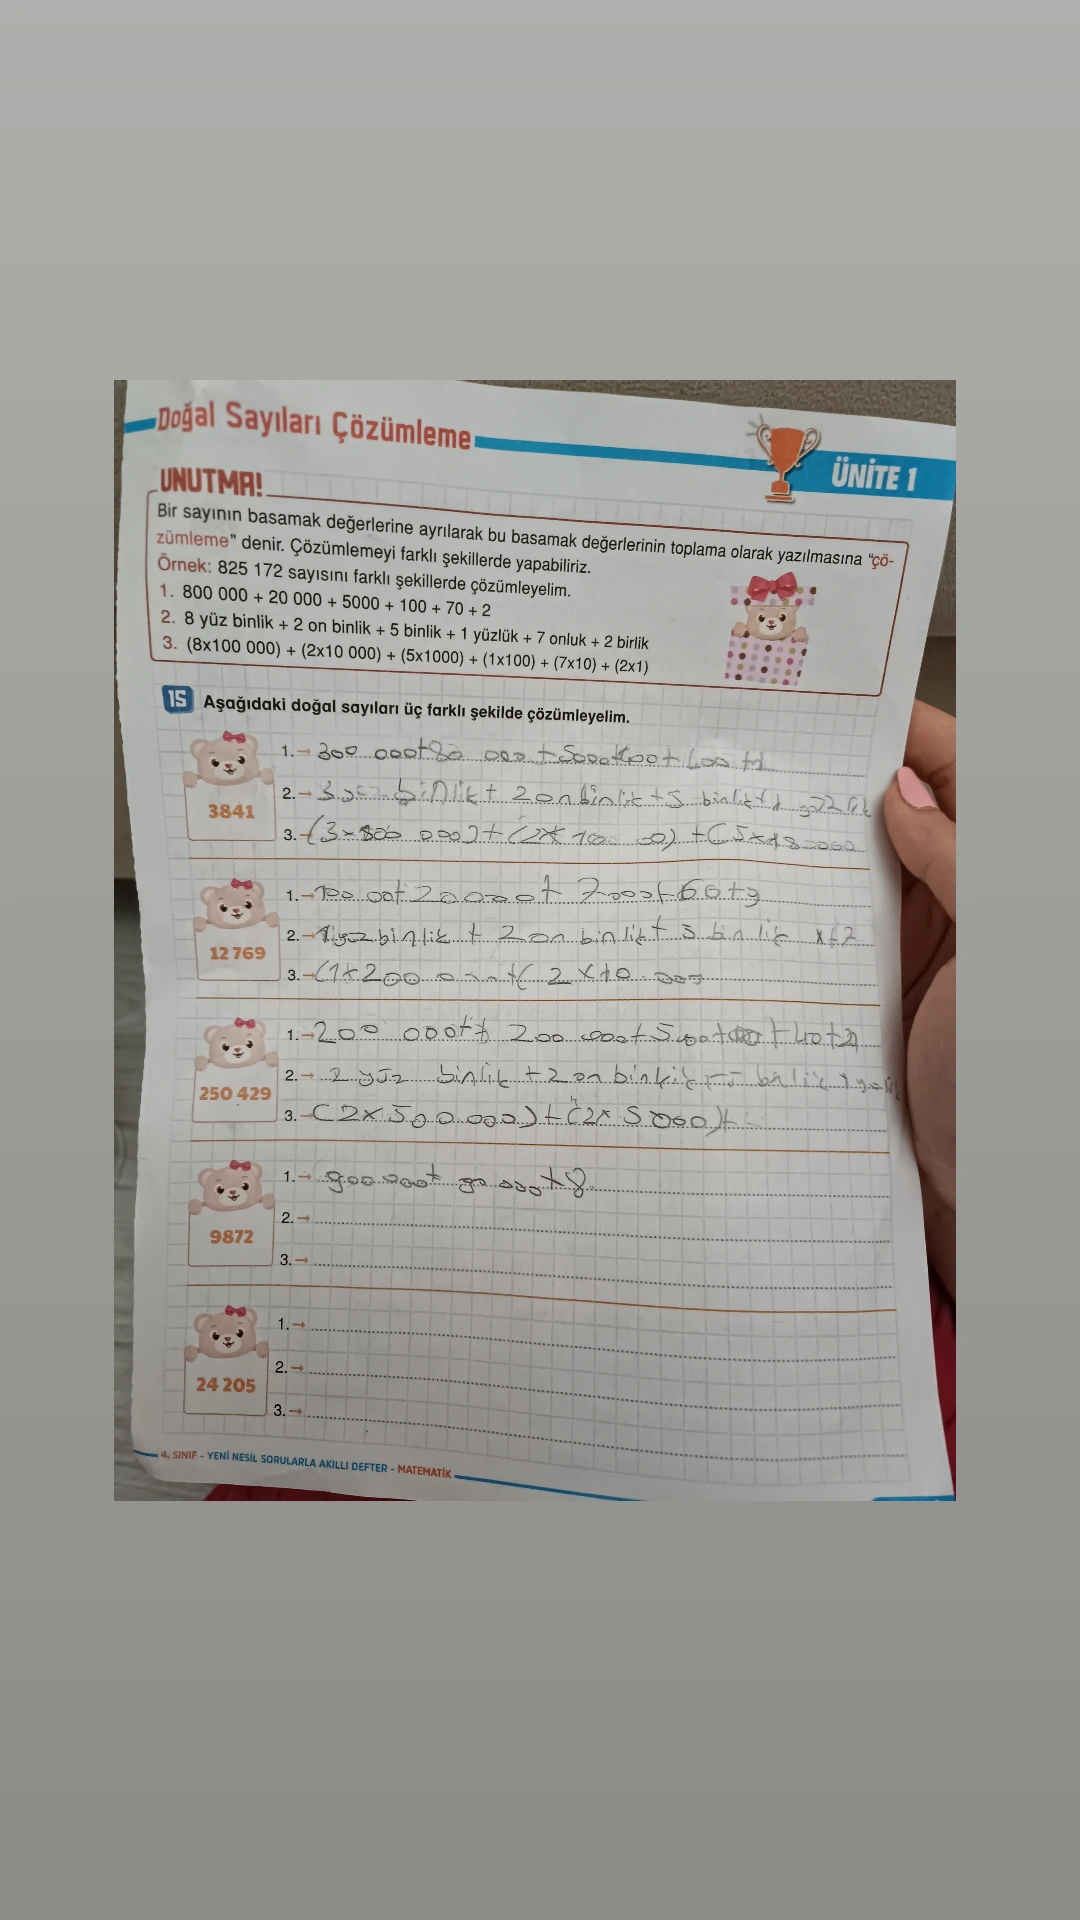 Doğal Sayıları Çözümleme
ÜNİTE 1
UNUTMA!
Bir sayının basamak değerlerine ayrılarak bu basamak değerlerinin toplama olarak yazılmasına “çö-
zümleme” denir. Çözümlemeyi farklı şekillerde yapabiliriz.
Örnek: 825 172 sayısını farklı şekillerde çözümleyelim.
1. 800 000 + 20 000 + 5000 + 100 + 70 + 2
2. 8 yüz binlik + 2 on binlik + 5 binlik + 1 yüzlük + 7 onluk + 2 birlik
3. (8x100 000) + (2x10 000) + (5x1000) + (1x100) + (7x10) + (2x1)
15 Aşağıdaki doğal sayıları üç farklı şekilde çözümleyelim.
3841
1.→ 300 000+80 000 +5000+
2.→ 3 binlik + 2 on binlik +5 binlik
3.→ (3x 000)+
12 769
1.→ 20000+ 7000+60+9
2.→ 1 yüz binlik + 2 on binlik + 5 binlik
3.→ (1x200 (2x10 000
250 429
1.→ 200 000+ 200 000+5 +40+
2.→ 2 yüz binlik +2 on binlik binlik
3.→ (2x500.000)+(2x5000)+
9872
1.→ 900 000+ 90 000+8
2.→
3.→
24 205
1.→
2.→
3.→
4. SINIF - YENİ NESİL SORULARLA AKILLI DEFTER - MATEMATİK